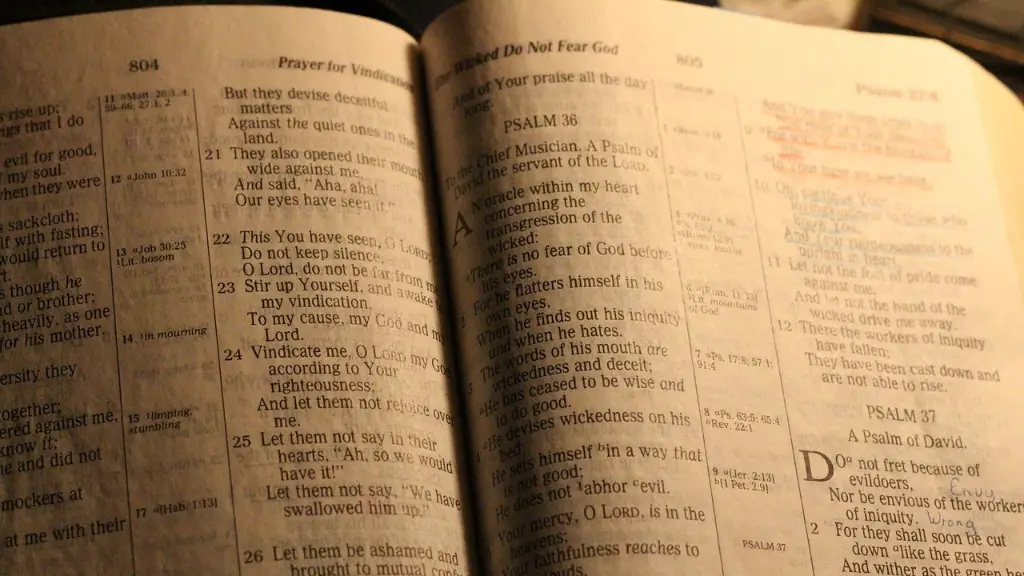 804
Prayer for
rise up;
things that I do
evil for good,
my soul.
when they were
sackcloth;
with fasting;
would return to
though he
or brother;
heavily, as one
for his mother,
they
together;
against me,
know it;
and did not
mockers at
at me with their
11 Matt. 26:3, 4,
59–66; 27:1, 2
12 aJohn 10:32
13 aJob 30:25
bLit. bosom
14 in mourning
15 limping,
stumbling
17 a[Hab. 1:13]
But they devise deceitful
matters
Against the quiet ones in the
land.
21 They also opened their mouth
wide against me,
And said, "Aha, aha!
Our eyes have seen it."
22 This You have seen, O LORD;
Do not keep silence.
O Lord, do not be far from
23 Stir up Yourself, and awake
my vindication,
To my cause, my God and my
Lord.
24 Vindicate me, O LORD my God,
according to Your
righteousness;
And let them not rejoice over
me.
25 Let them not say in their
hearts, "Ah, so we would
have it!"
Let them not say, "We have
swallowed him up."
26 Let them be ashamed and
brought to mutual
The Wicked Do Not Fear God
805
Psalm 37:4
And of Your praise all the day
long.
PSALM 36
To the Chief Musician. A Psalm of
David the servant of the LORD.
AN oracle within my heart
concerning the
transgression of the
wicked:
There is no fear of God before
his eyes.
For he flatters himself in his
own eyes,
When he finds out his iniquity
and when he hates.
The words of his mouth are
wickedness and deceit;
He has ceased to be wise and
to do good.
He devises wickedness on his
bed;
He sets himself bin in a way that
is not good;
He does not abhor cevil.
Your mercy, O LORD, is in the
heavens;
Your faithfulness reaches to
clouds.
6 a[Rom. 11:33]
Lit. mountains
of God
7 aPs. 17:8; 57:1;
91:4
8 aPs. 63:5; 65:4
bRev. 22:1
9 a[Jer. 2:13]
b[1 Pet. 2:9]
PSALM 37
10 Oh, continue Your
lovingkindness to those who
know You,
And Your righteousness to the
upright in heart.
11 Let not the foot of pride come
against me,
And let not the hand of the
wicked drive me away.
12 There the workers of iniquity
have fallen;
They have been cast down and
are not able to rise.
PSALM 37
A Psalm of David.
DO a not fret because of
evildoers,
Envy
Nor be envious of the workers
of iniquity. Wrong
2 For they shall soon be cut
down alike the grass,
And wither as the green